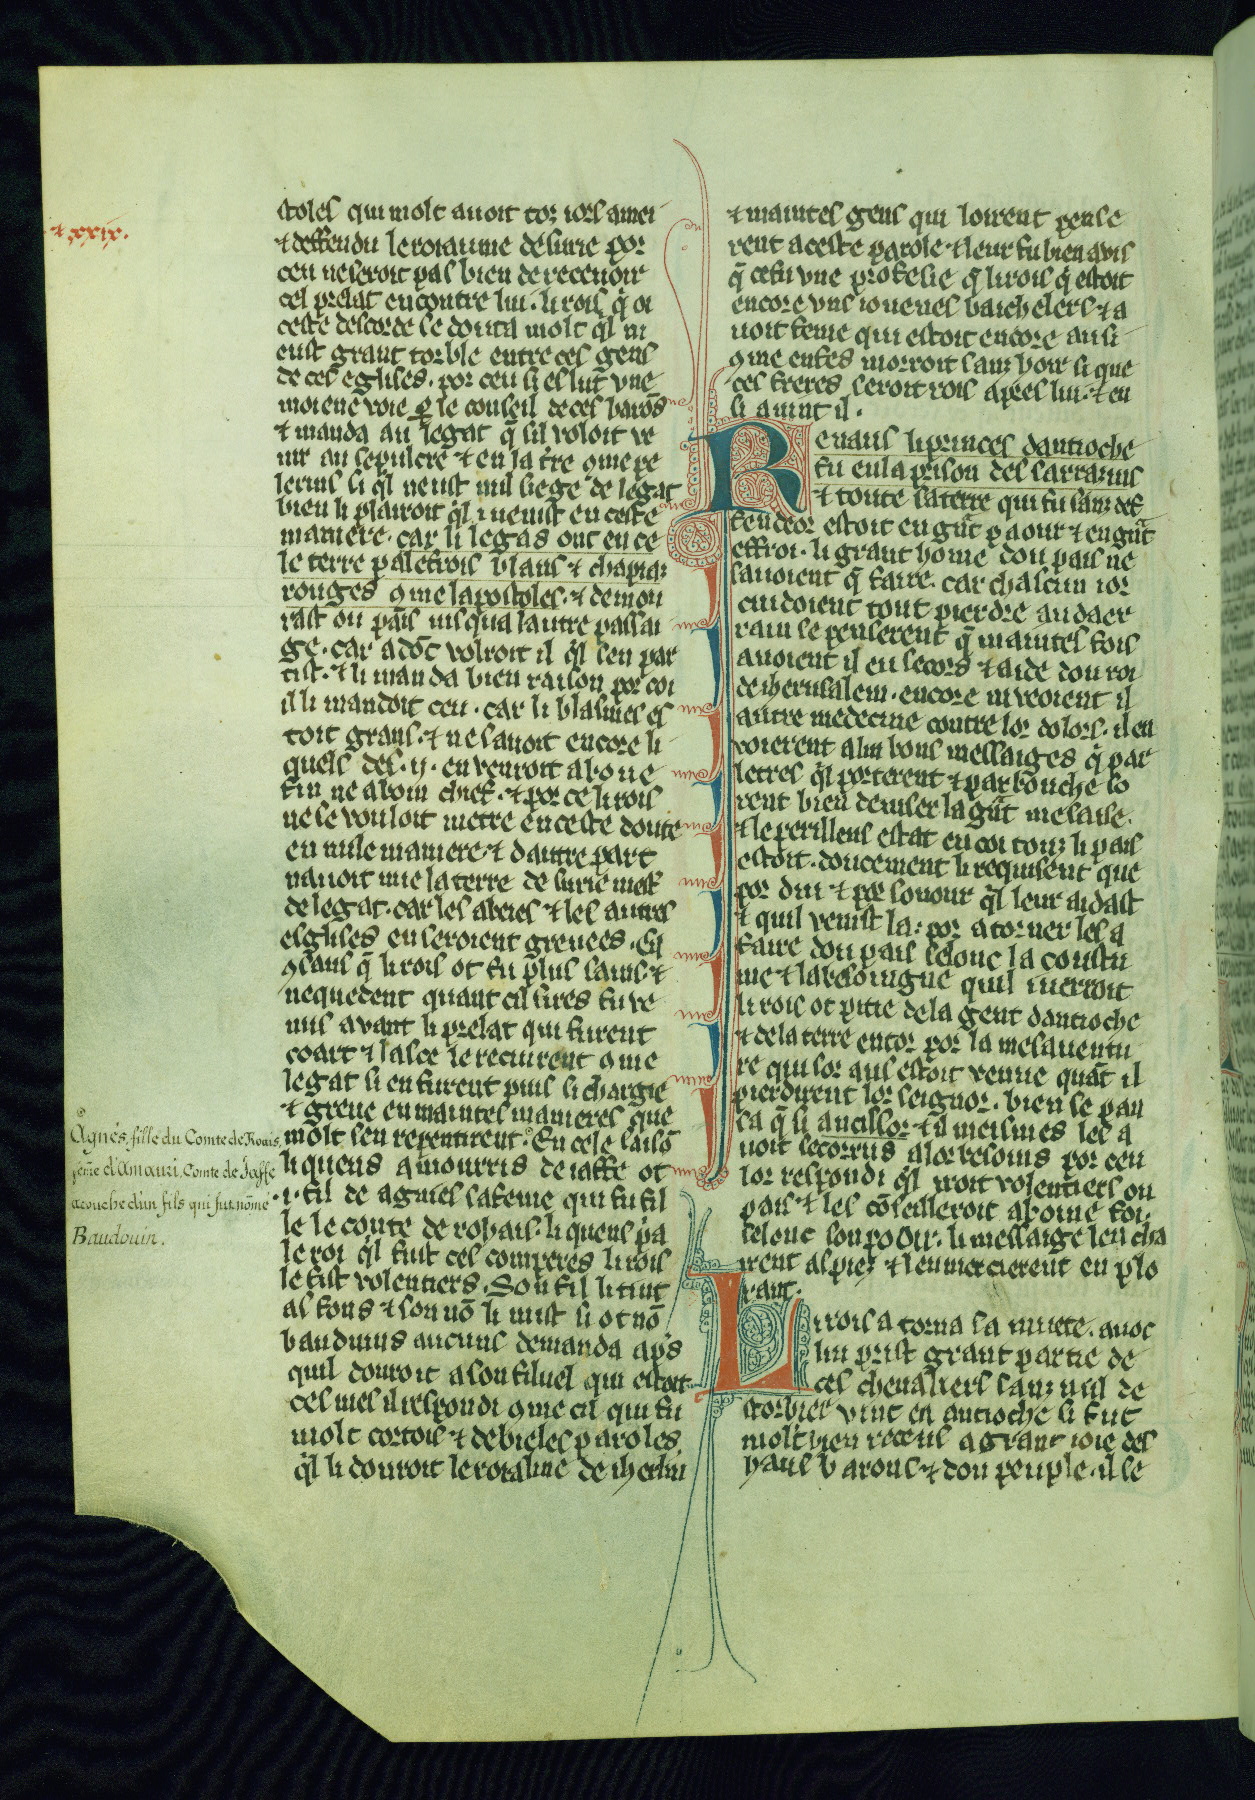 ⁊ xxix.
stoles qui molt auoit tor iors amei
⁊ deffendu le roiaume de surie por
ceu ne seroit pas bien de receuoir
cel prelat encontre lui. li rois q̄ oi
ceste descorde se douta molt q̄l ni
eust grant torble entre ces gens
de ces eglises. por ceu si eslut vne
moiene voie ꝑ le conseil de ces barōs
⁊ manda au legat q̄ sil voloit ve
nir au sepulcre ⁊ en la t̄re ꝯme pe
lerins si q̄l neust nul siege de legat
bien li plairoit q̄l i venist en ceste
maniere. car li legas ont en ce
le terre palefrois blans ⁊ chapiaz
rouges ꝯme lapostoles. ⁊ demou
rast ou païs iusqua lautre passai
ge. car adōc volroit il q̄l sen par
tist. ⁊ li manda bien raison por coi
il li mandoit ceu. car li blasmes es
toit grans. ⁊ ne sauoit encore li
quels des .ij. en venroit a bone
fin ne a boin chief. ⁊ por ce li rois
ne se vouloit metre en ceste doute
en nule maniere. ⁊ dautre part
nauoit mie la terre de surie mest
de legat. car les abeies ⁊ les autres
esglises en seroient greuees. Cil
ꝯsaus q̄ li rois ot fu plus sains. ⁊
nequedent quant cil sires fu ve
nus avant li prelat qui furent
coart ⁊ lasce le recuirent ꝯme
legat si en furent puis si chargie
⁊ greue en maintes manieres que
molt sen repentirent. En cele saisō
li quens amourris de iaffe ot
.i. fil de agnies sa feme qui fu fil
le le conte de rohais. li quens pa
le roi q̄l fust ces comperes. li rois
le fist volentiers. Son fil li tint
as fons ⁊ son nō li mist si ot nō
bauduins aucuns demanda aps
quil donroit a son filuel qui estoit
ces nies il respondi ꝯme cil qui fu
molt cortois ⁊ de bieles paroles
q̄l li donroit le roialme de iherlm
Agnès, fille du Comte de Rouais,
feme d'Amauri, Comte de Jaffe
acouche d'un fils qui fut nōmé
Baudouin.
⁊ maintes gens qui loirent pense
rent a ceste parole ⁊ leur fu bien avis
q̄ ce fu vne profesie q̄ li rois q̄ estoit
encore vns iouenes baichelers ⁊ a
uoit feme qui estoit encore ausi
ꝯme enfes morroit sanz hoir si que
ces freres seroit rois apres lui. ⁊ en
si auint il.
Renaus li princes dantioche
fu en la prison des sarrazins
⁊ toute sa terre qui fu sanz def
fendeor estoit en gūt paour ⁊ en gūt
effroi. li grant home dou pais ne
sauoient q̄ faire. car chascun ior
cuidoient tout pierdre au daer
rain se penserent q̄ maintes fois
auoient il eu secors ⁊ aide dou roi
de iherusalem. encore ni veoient il
autre medecine contre lor dolors. il en
voierent a lui bons messaiges q̄ par
letres q̄l porterent ⁊ par bouche so
rent bien deuiser la gūt mesaise.
⁊ le perillens estat en coi touz li pais
estoit. doucement li requisent que
por diu ⁊ por sonour q̄l leur aidast
⁊ quil venist la: por atorner les a
faire dou pais selonc la coustu
me ⁊ la besoingne quil i verroit
li rois ot pitie de la gent dantioche
⁊ de la terre entor por la mesauentu
re qui sor aus estoit venue quāt il
pierdirent lor seignor. bien se pan
sa q̄ si ancissor ⁊ il meismes les a
uoit secorrus a lor besoins por ceu
lor respondi q̄l iroit volentiers ou
pais ⁊ les cōseilleroit a boine foi.
selonc son pooir. li messaige len cha
irent as piez ⁊ len mercierent en plo
rant.
Li rois atorna sa muete. auoc
lui prist grant partie de
ces cheualiers sanz nul de
storbier vint en antioche si fut
molt bien receus a grant ioie des
haus barons ⁊ dou peuple. il se